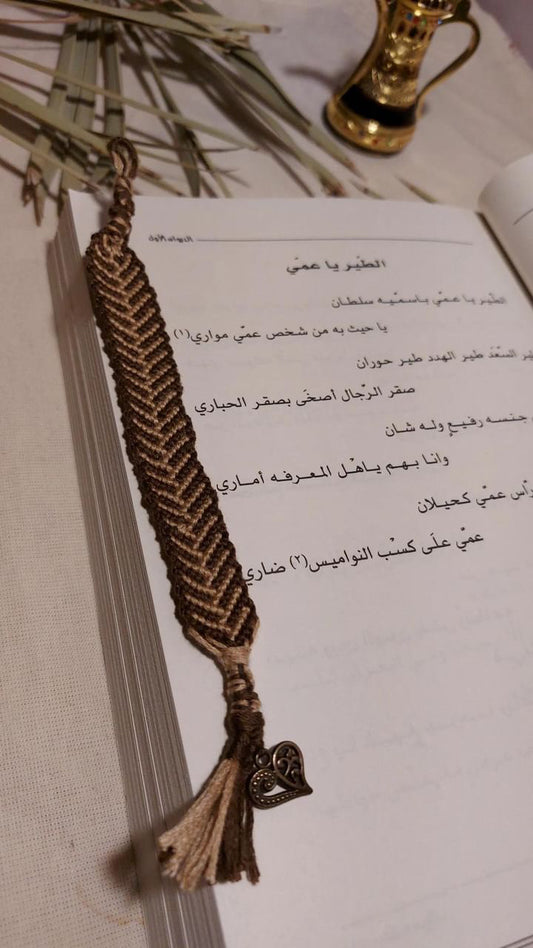 الديوان الأول
الطّير يا عمّي
الطّير يا عمّي باسمّيه سلطان
يا حيث به من شخص عمّي مواري (١)
السّعَد طير الهدد طير حوران
صقر الرّجال أصخَى بصقر الحباري
جنسه رفيعٍ وله شان
وانا بهم ياهْل المعرفه أماري
رّاس عمّي كحيلان
عمّي علَى كسْب النواميس (٢) ضاري